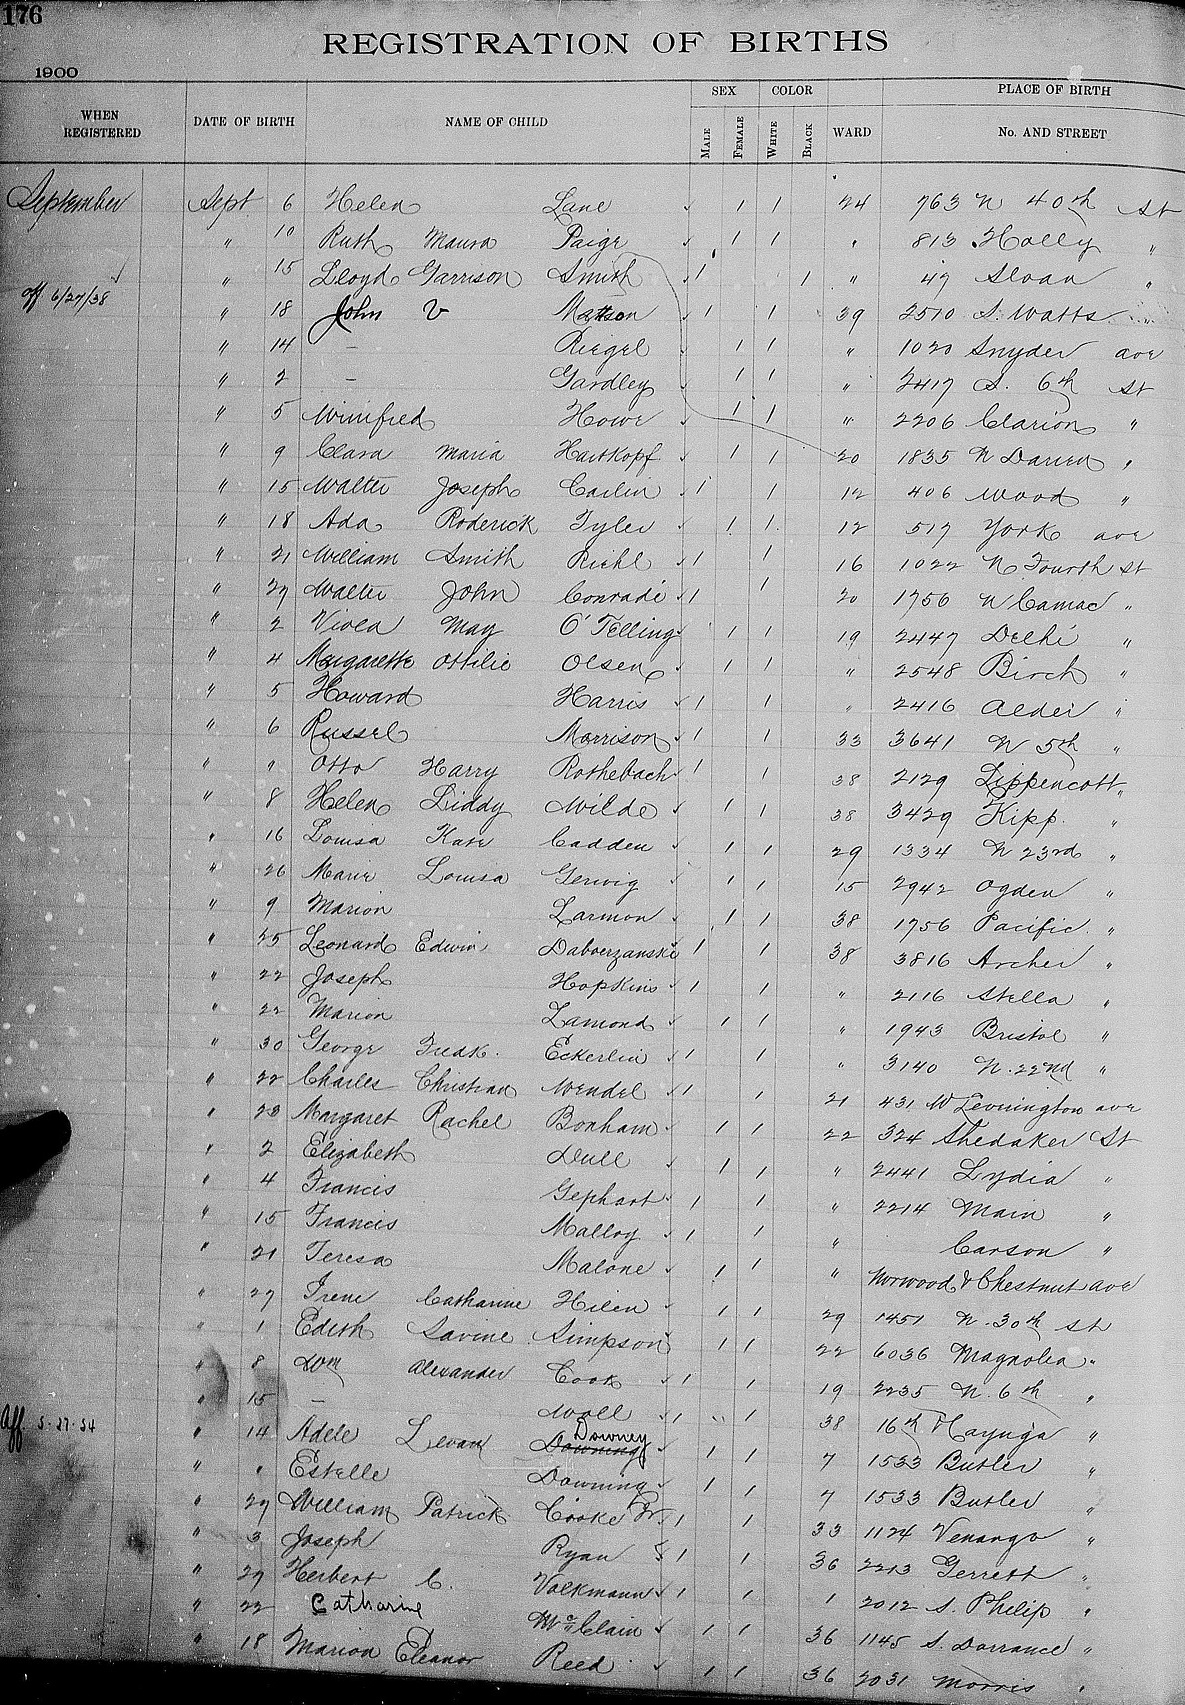 176
REGISTRATION OF BIRTHS
1900
WHEN REGISTERED DATE OF BIRTH NAME OF CHILD SEX COLOR WARD PLACE OF BIRTH
MALE FEMALE WHITE BLACK No. AND STREET
September Sept 6 Helen Lane ✓ 1 1 24 763 N 40th St
" 10 Ruth Maura Paige ✓ 1 1 " 813 Holly "
" 15 Lloyd Garrison Smith ✓ 1 1 " 47 Sloan "
Aff 6/27/38 " 18 John V Matson ✓ 1 1 39 2510 S. Watts "
" 14 — Riegel ✓ 1 1 " 1020 Snyder ave
" 2 — Gardley ✓ 1 1 " 2417 S. 6th St
" 5 Winifred Howe ✓ 1 1 " 2206 Clarion "
" 9 Clara Maria Hartkopf ✓ 1 1 20 1835 N Darien "
" 15 Walter Joseph Carlin ✓ 1 1 12 406 Wood "
" 18 Ada Roderick Tyler ✓ 1 1 12 517 York ave
" 21 William Smith Riehl ✓ 1 1 16 1022 N Fourth St
" 27 Walter John Conradi ✓ 1 1 20 1756 N Camac "
" 2 Viola May O'Telling ✓ 1 1 19 2447 Delhi "
" 4 Margarette Ottilie Olsen ✓ 1 1 " 2548 Birch "
" 5 Howard Harris ✓ 1 1 " 2416 Alder "
" 6 Russel Morrison ✓ 1 1 33 3641 N 5th "
" " Otto Harry Rothebach ✓ 1 1 38 2129 Lippencott "
" 8 Helen Liddy Wilde ✓ 1 1 38 3429 Kipp "
" 16 Louisa Kate Cadden ✓ 1 1 29 1334 N 23rd "
" 26 Marie Louisa Gerwig ✓ 1 1 15 2942 Ogden "
" 9 Marion Larmon ✓ 1 1 38 1756 Pacific "
" 25 Leonard Edwin Daboerzanski ✓ 1 1 38 3816 Archer "
" 22 Joseph Hopkins ✓ 1 1 " 2116 Stella "
" 22 Marion Lamond ✓ 1 1 " 1943 Bristol "
" 30 George Fredk. Eckerlin ✓ 1 1 " 3140 N. 22nd "
" 22 Charles Christian Wendel ✓ 1 1 21 431 W Levrington ave
" 23 Margaret Rachel Bonham ✓ 1 1 22 324 Shedaker St
" 2 Elizabeth Dull ✓ 1 1 " 2441 Lydia "
" 4 Francis Gephart ✓ 1 1 " 2214 Main "
" 15 Francis Malloy ✓ 1 1 " Carson "
" 21 Teresa Malone ✓ 1 1 " Norwood & Chestnut ave
" 27 Irene Catharine Hilen ✓ 1 1 29 1451 N. 30th St
" 1 Edith Lavine Simpson ✓ 1 1 22 6036 Magnolia "
" 8 Wm Alexander Cook ✓ 1 1 19 2235 N. 6th "
" 15 — Woll ✓ 1 1 38 16th & Cayuga "
Aff 5-27-54 " 14 Adele Levan Downing Downey ✓ 1 1 7 1533 Butler "
" " Estelle Downing ✓ 1 1 7 1533 Butler "
" 27 William Patrick Cooke Jr. 1 1 33 1124 Venango "
" 3 Joseph Ryan 1 1 36 2213 Gerrett "
" 27 Herbert C. Volkmann ✓ 1 1 1 2012 S. Philip "
" 22 Catharine McClain ✓ 1 1 36 1145 S. Dorrance "
" 18 Marion Eleanor Reed ✓ 1 1 36 2031 Morris "